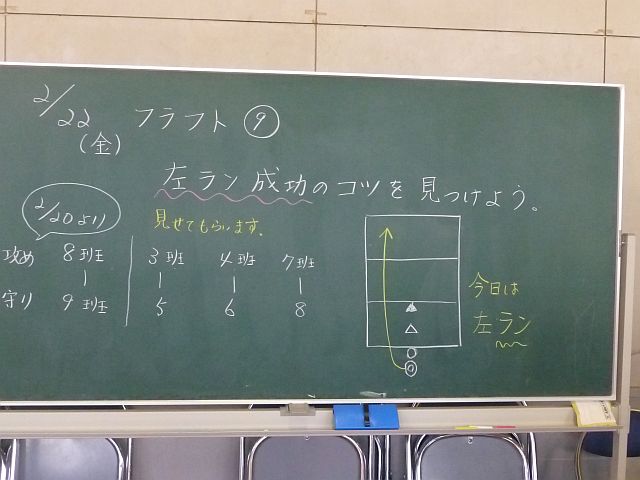 2/22
(金)
フラフト ⑨
左ラン成功のコツを見つけよう。
2/20より
見せてもらいます。
攻め 8班 3班 4班 7班
守り 9班 5 6 8
今日は
左ラン